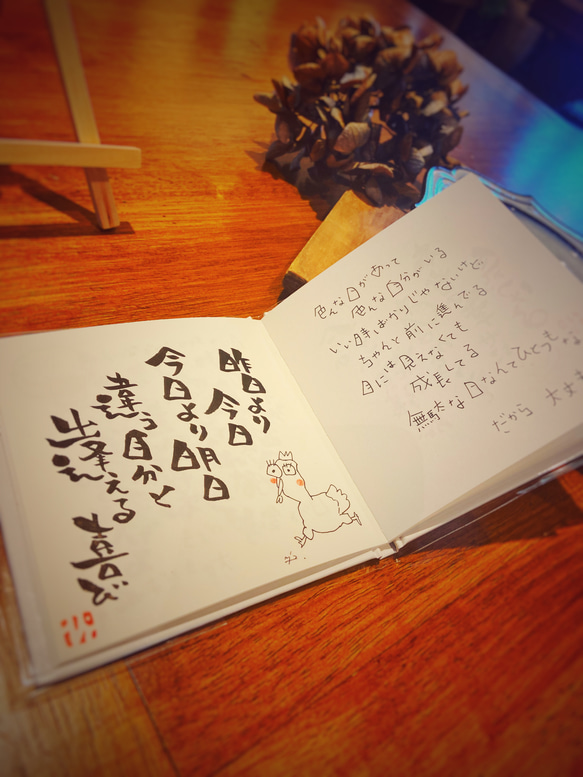 昨日より
今日
今日より明日
違う自分と
出逢える
喜び
色んな日があって
色んな自分がいる
いい時ばかりじゃないけど
ちゃんと前に進んでる
目には見えなくても
成長してる
無駄な日なんてひとつもな
だから 大丈